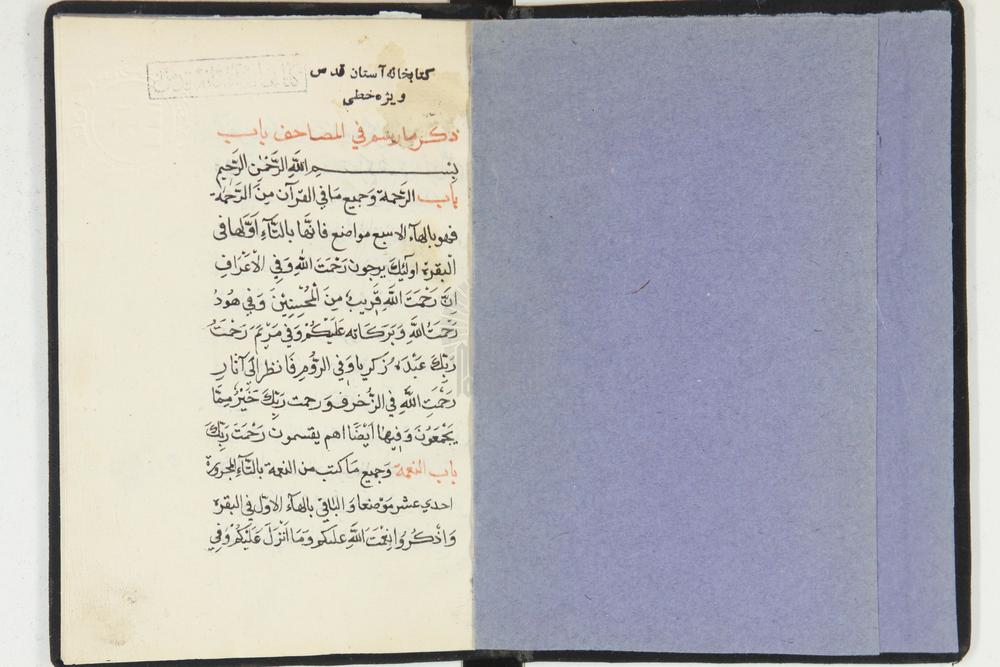 كتابخانه آستان قدس
ويژه خطى
ذكر ما رسم في المصاحف باب
بِسْمِ اللَّهِ الرَّحْمٰنِ الرَّحِيمِ
باب الرَّحمة وَجميع مَا في القرآن مِنَ الرَّحمة
فهو بالهآء الا سبع مواضع فانَّها بالتَّآءِ اَوَّلها فى
البقرة اولٰئِكَ يرجون رَحْمَتَ اللهِ وَفي الاَعْرَافِ
اِنَّ رَحْمَتَ اللَّهِ قَرِيبٌ مِنَ الْمُحْسِنِيْنَ وَفي هُودُ
رَحْمَتُ اللَّهِ وَبَرَكَاته عَلَيْكُمْ وَفي مَرْيَمَ رَحْمَتُ
رَبِّكَ عَبْدَهُ زَكريا وَفي الرُّومِ فَانظر اِلَىٰ آثَارِ
رَحْمَتِ اللَّهِ في الزُّخرف وَرحمت رَبِّكَ خَيْرٌ مِمَّا
يَجْمَعُوْنَ وَفِيهَا اَيْضًا اهم يقسمون رَحْمَتَ رَبِّكَ
باب النعمة وَجميع مَا كتب من النعمة بالتَّآءِ المجرورة
احدي عشر مَوْضعا وَالباقي بالهآء الاوّل في البقرة
وَاذْكُرُوا نِعْمَتَ اللَّهِ عليكم وَمَا اَنْزَلَ عَلَيْكُمْ وَفِي